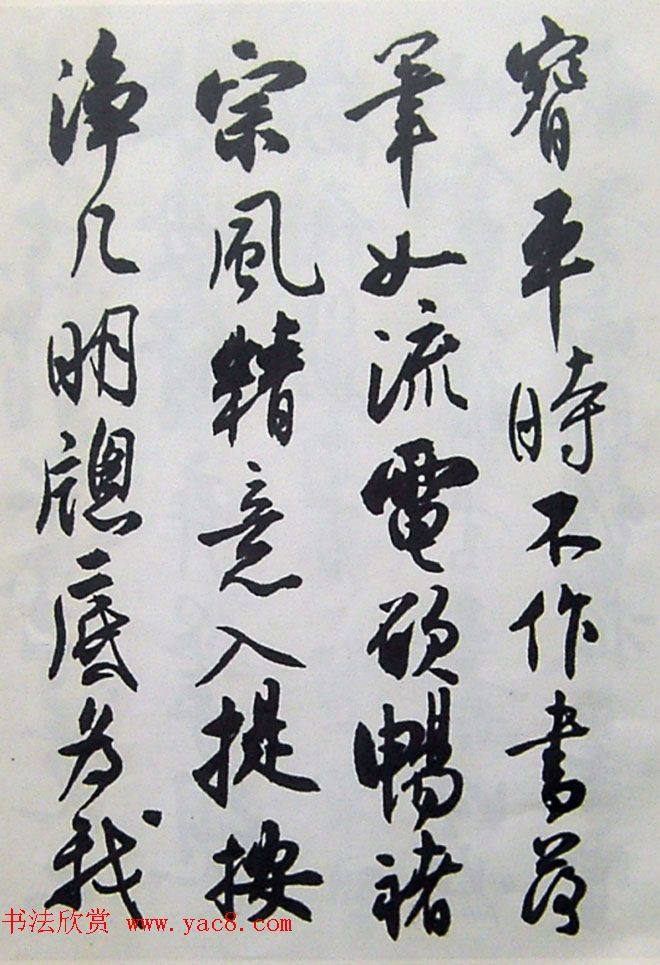 平時不作書落
筆如流電欲暢褚
宗風精意入提按
淨几明牕底為我
书法欣赏 www.yac8.com